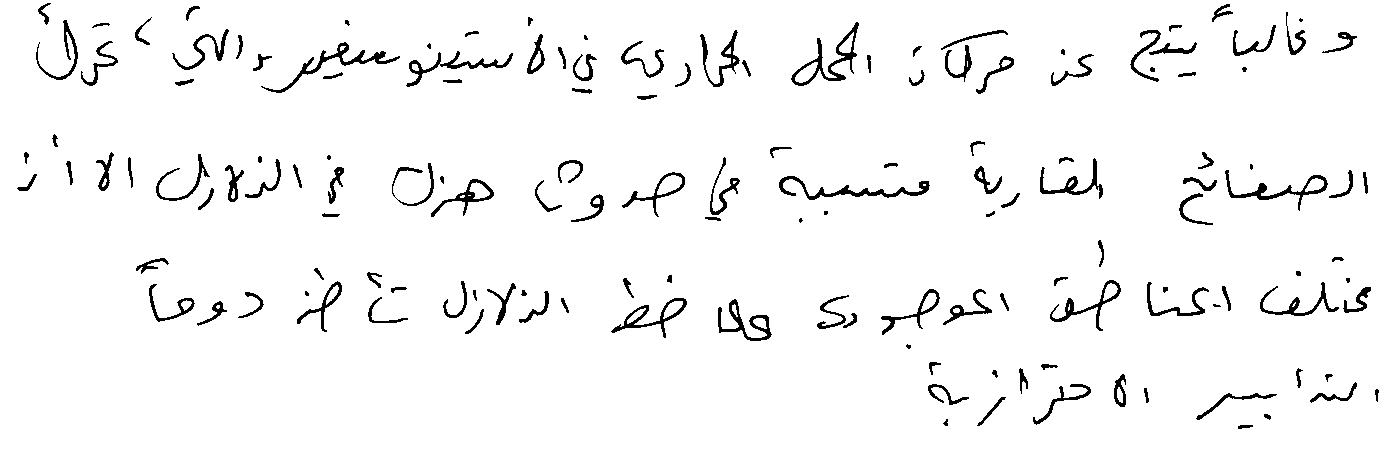 وغالباً ينتج عن حركات الحمل الحراري في الأستينوسفير والتي تحرك
الصفائح القارية متسببة في حدوث هزل في الزلازل الا أن
مختلف المناطق الموجودة على خط الزلازل تأخذ دوماً
التدابير الاحترازية